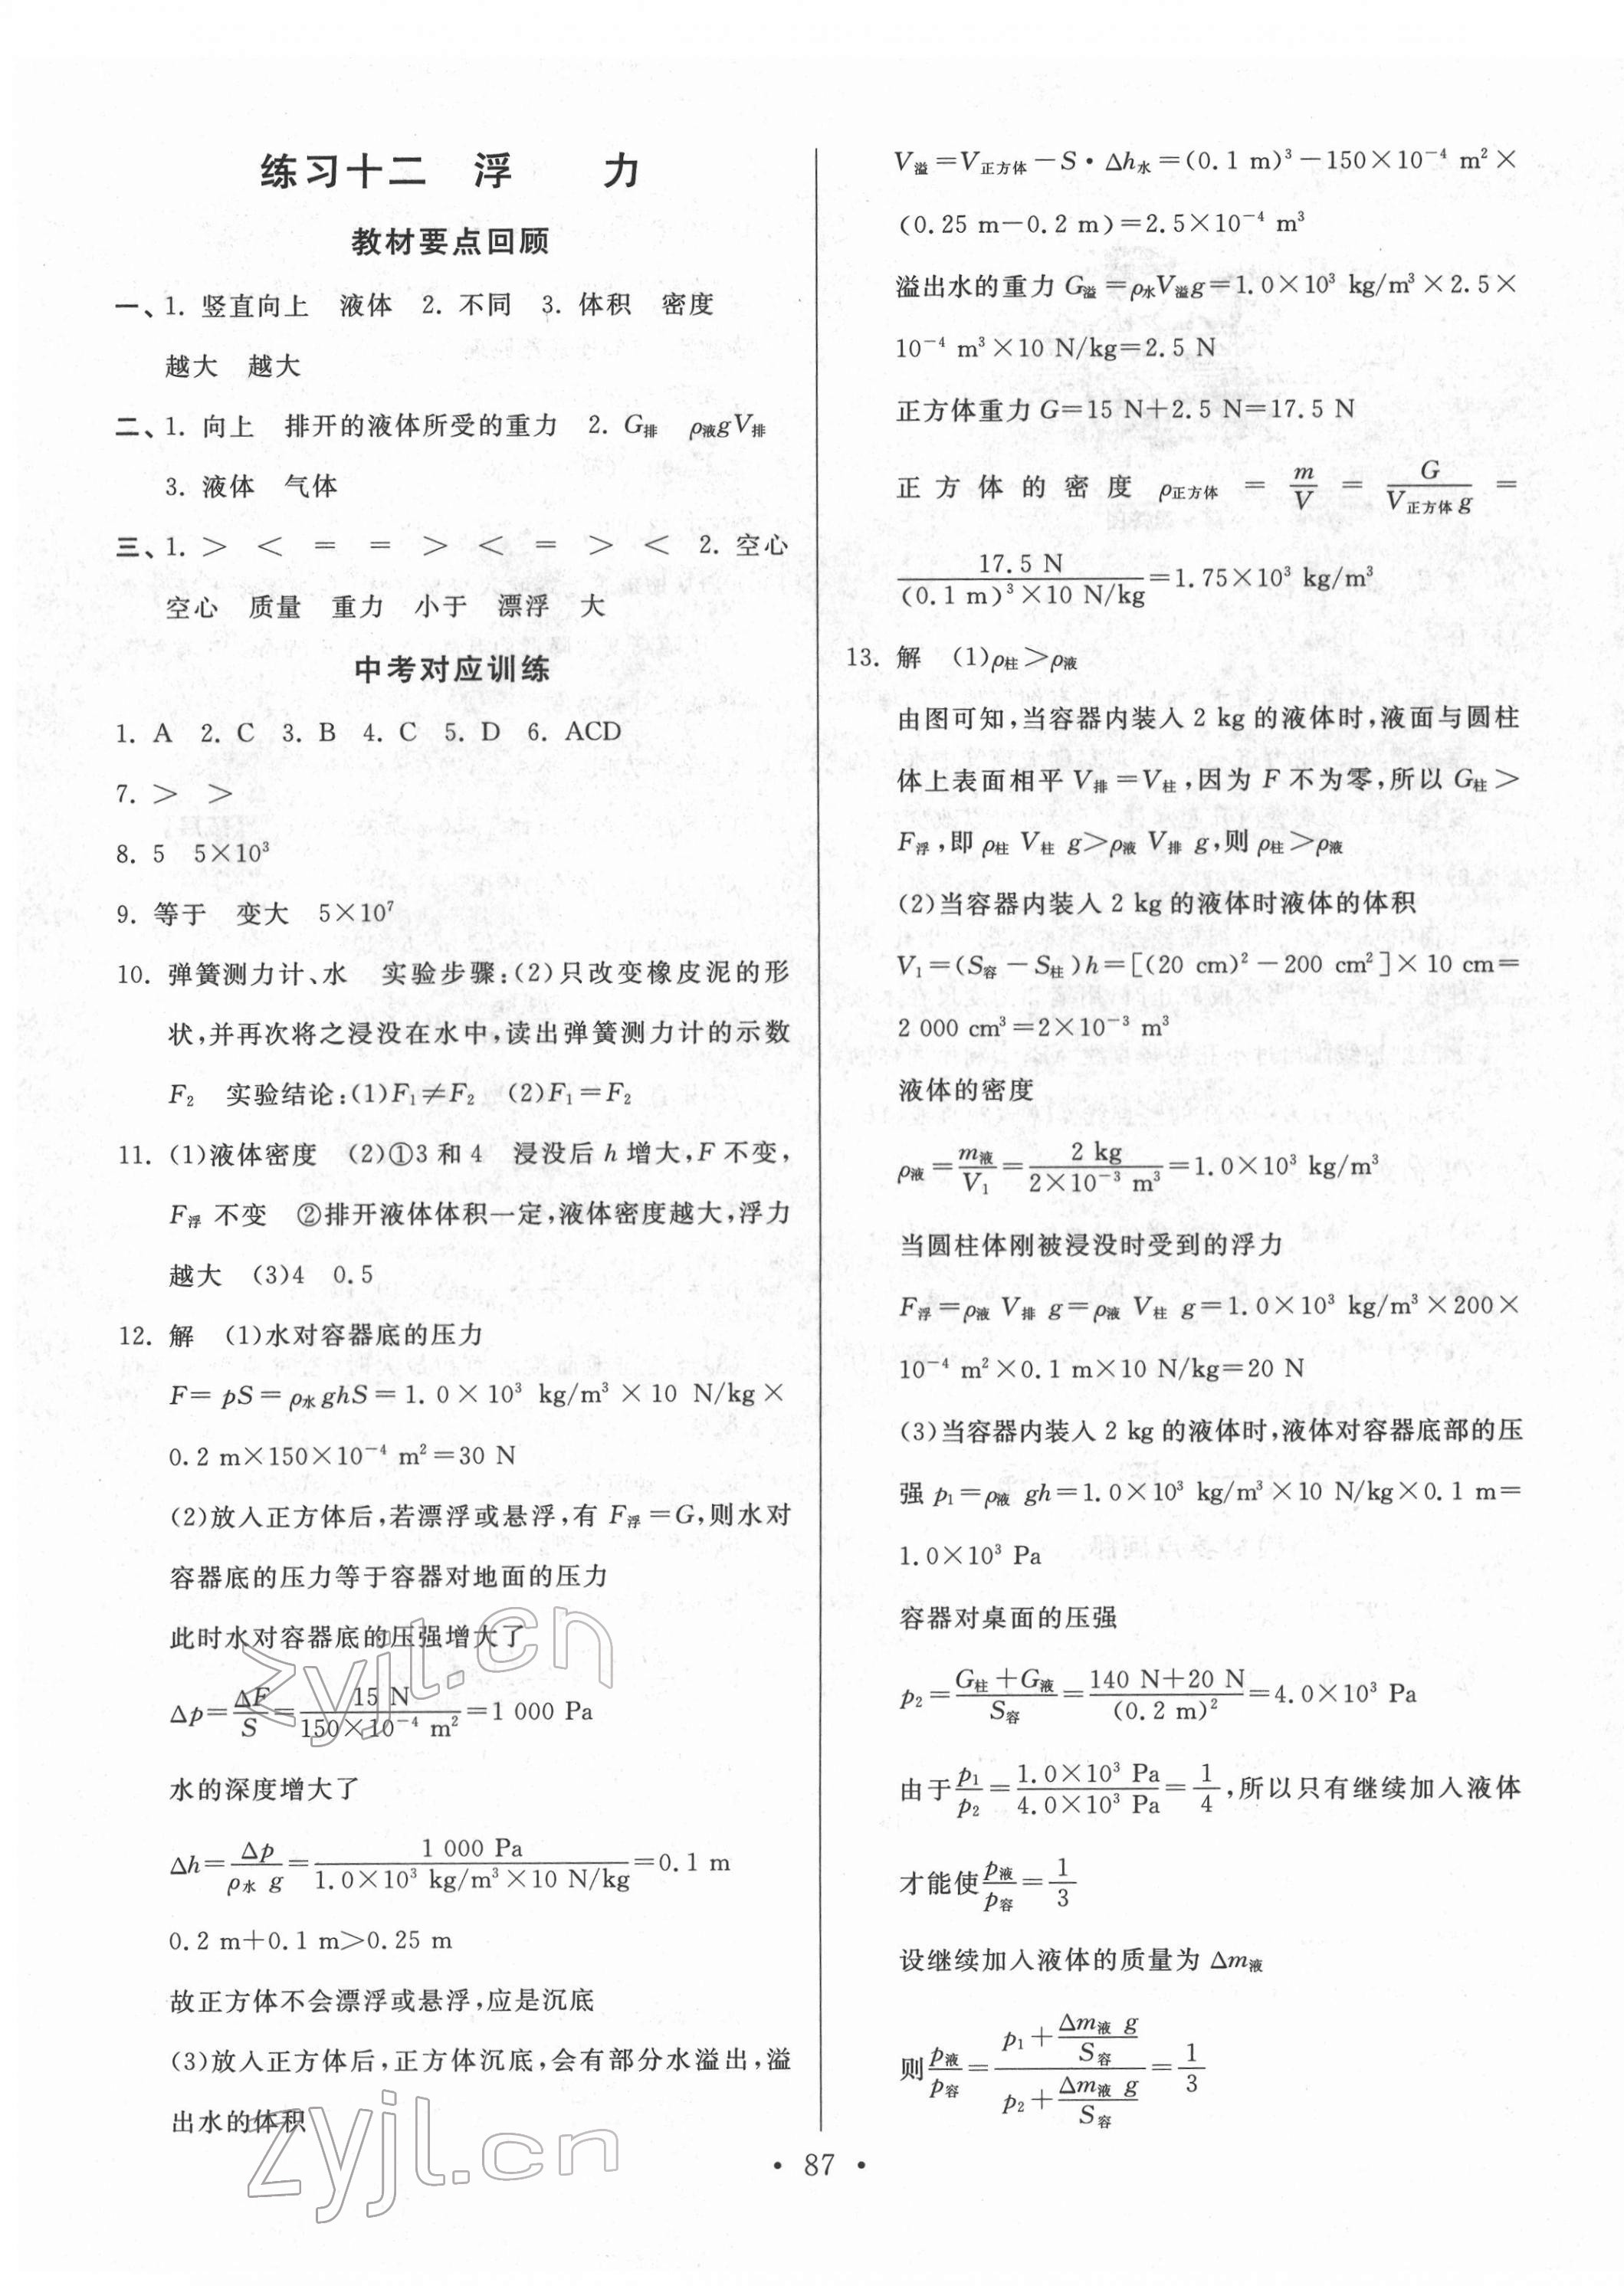 练习十二 浮 力
教材要点回顾
一、1. 竖直向上 液体 2. 不同 3. 体积 密度
越大 越大
二、1. 向上 排开的液体所受的重力 2. G排 ρ液gV排
3. 液体 气体
三、1. > < = = > < = > < 2. 空心
空心 质量 重力 小于 漂浮 大
中考对应训练
1. A 2. C 3. B 4. C 5. D 6. ACD
7. > >
8. 5 5×10³
9. 等于 变大 5×10⁷
10. 弹簧测力计、水 实验步骤:(2)只改变橡皮泥的形
状,并再次将之浸没在水中,读出弹簧测力计的示数
F₂ 实验结论:(1)F₁≠F₂ (2)F₁=F₂
11. (1)液体密度 (2)①3 和 4 浸没后 h 增大,F 不变,
F浮 不变 ②排开液体体积一定,液体密度越大,浮力
越大 (3)4 0.5
12. 解 (1)水对容器底的压力
F=pS=ρ水ghS=1.0×10³ kg/m³×10 N/kg×
0.2 m×150×10⁻⁴ m²=30 N
(2)放入正方体后,若漂浮或悬浮,有 F浮=G,则水对
容器底的压力等于容器对地面的压力
此时水对容器底的压强增大了
Δp=ΔF/S=15 N/(150×10⁻⁴ m²)=1 000 Pa
水的深度增大了
Δh=Δp/(ρ水 g)=1 000 Pa/(1.0×10³ kg/m³×10 N/kg)=0.1 m
0.2 m+0.1 m>0.25 m
故正方体不会漂浮或悬浮,应是沉底
(3)放入正方体后,正方体沉底,会有部分水溢出,溢
出水的体积
V溢=V正方体-S·Δh水=(0.1 m)³-150×10⁻⁴ m²×
(0.25 m-0.2 m)=2.5×10⁻⁴ m³
溢出水的重力 G溢=ρ水V溢g=1.0×10³ kg/m³×2.5×
10⁻⁴ m³×10 N/kg=2.5 N
正方体重力 G=15 N+2.5 N=17.5 N
正方体的密度 ρ正方体=m/V=G/(V正方体 g)=
17.5 N/((0.1 m)³×10 N/kg)=1.75×10³ kg/m³
13. 解 (1)ρ柱>ρ液
由图可知,当容器内装入 2 kg 的液体时,液面与圆柱
体上表面相平 V排=V柱,因为 F 不为零,所以 G柱>
F浮,即 ρ柱 V柱 g>ρ液 V排 g,则 ρ柱>ρ液
(2)当容器内装入 2 kg 的液体时液体的体积
V₁=(S容-S柱)h=[(20 cm)²-200 cm²]×10 cm=
2 000 cm³=2×10⁻³ m³
液体的密度
ρ液=m液/V₁=2 kg/(2×10⁻³ m³)=1.0×10³ kg/m³
当圆柱体刚被浸没时受到的浮力
F浮=ρ液 V排 g=ρ液 V柱 g=1.0×10³ kg/m³×200×
10⁻⁴ m²×0.1 m×10 N/kg=20 N
(3)当容器内装入 2 kg 的液体时,液体对容器底部的压
强 p₁=ρ液 gh=1.0×10³ kg/m³×10 N/kg×0.1 m=
1.0×10³ Pa
容器对桌面的压强
p₂=(G柱+G液)/S容=(140 N+20 N)/(0.2 m)²=4.0×10³ Pa
由于p₁/p₂=(1.0×10³ Pa)/(4.0×10³ Pa)=1/4,所以只有继续加入液体
才能使p液/p容=1/3
设继续加入液体的质量为 Δm液
则p液/p容=(p₁+Δm液 g/S容)/(p₂+Δm液 g/S容)=1/3
· 87 ·
zyjl.cn
zyjl.cn